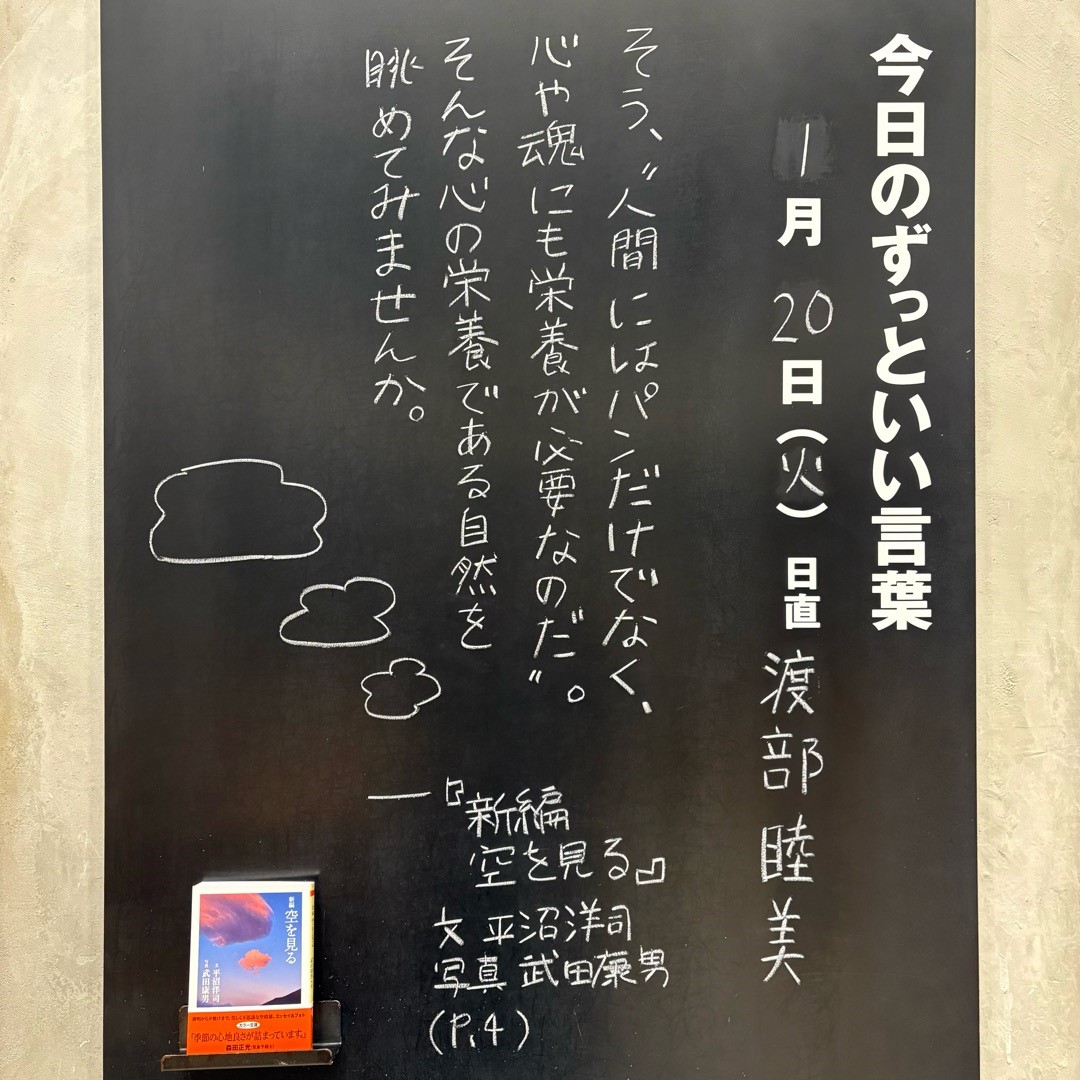 今日のずっといい言葉
1月20日(火) 日直 渡部睦美
そう、"人間にはパンだけでなく、
心や魂にも栄養が必要なのだ"。
そんな心の栄養である自然を
眺めてみませんか。
―『新編
空を見る』
文 平沼洋司
写真 武田康男
(P.4)
新編
空を見る
文 平沼洋司
写真 武田康男
「季節の心地良さが詰まっています。」
森田正光(気象予報士)